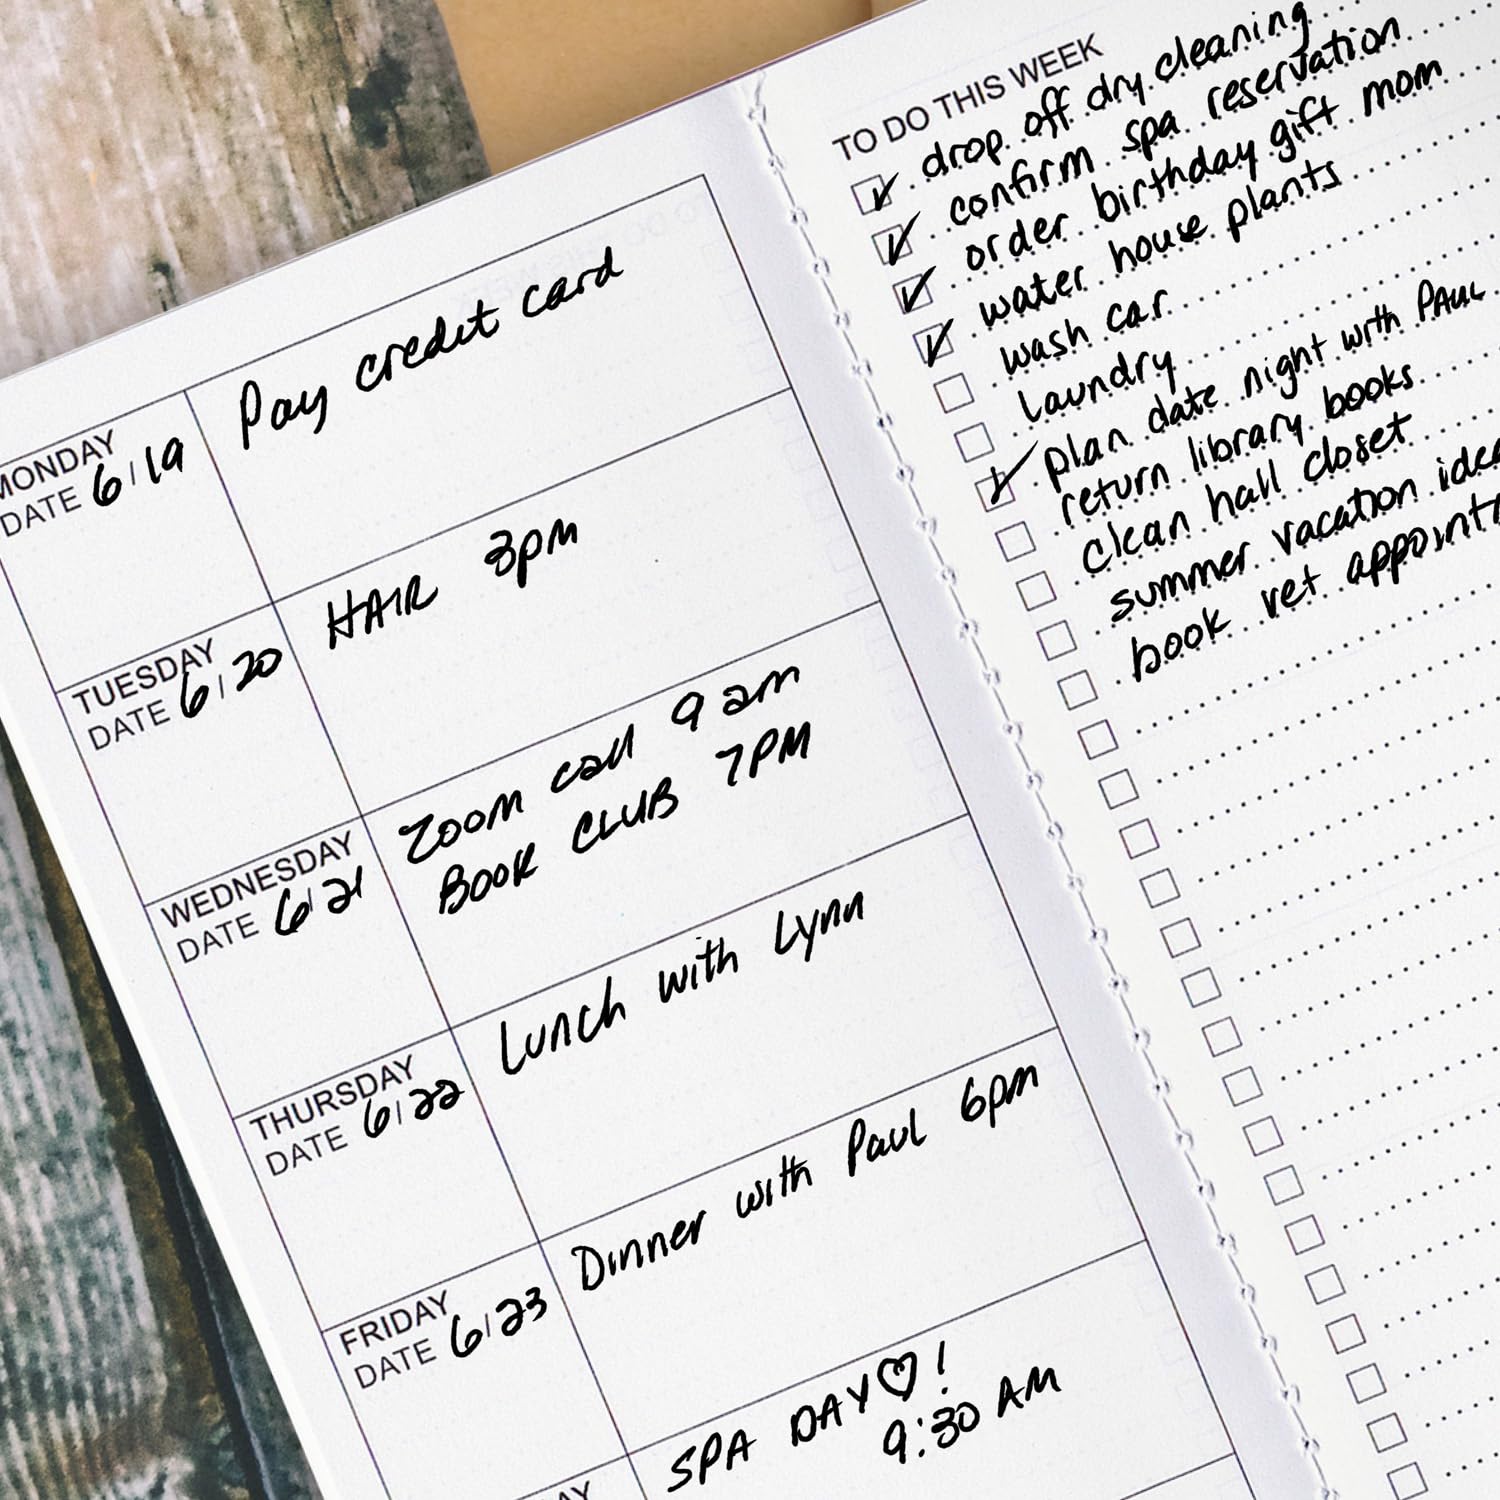 MONDAY
DATE 6/19
Pay credit card
TUESDAY
DATE 6/20
HAIR 3pm
WEDNESDAY
DATE 6/21
Zoom call 9 am
BOOK CLUB 7PM
THURSDAY
DATE 6/22
Lunch with Lynn
FRIDAY
DATE 6/23
Dinner with Paul 6pm
SPA DAY♡!
9:30 AM
TO DO THIS WEEK
drop off dry cleaning
confirm spa reservation
order birthday gift mom
water house plants
wash car
laundry
plan date night with PAUL
return library books
clean hall closet
summer vacation
book vet